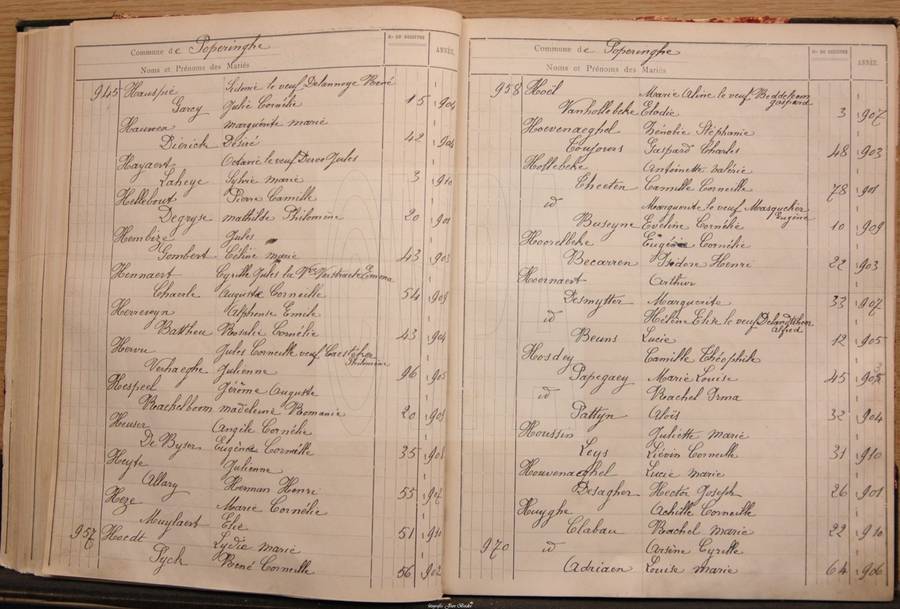 Commune de Poperinghe
Nos DU REGISTRE
ANNÉE.
Noms et Prénoms des Mariés
945 Hauspie Sidonie le veuf Delannoye René
Garcy Julie Cornélie 15 1904
Hauwen Marguérite marie
Dierick Désiré 42 1904
Hayaert Octavie le veuf Devos Jules
Laheye Sylvie marie 3 1910
Hellebout Pierre Camille
Degryse mathilde Philomène 20 1901
Hembize Jules
Gombert Céline marie 43 1903
Hennaert Cyrille Jules la Vve Verstraete Emma
Charle Augusta Corneille 54 1909
Herreweyn Alphonse Emile
Battheu Rosalie Cornélie 43 1904
Hervu Jules Corneille veuf Caestecker Philomène
Verhaeghe Julienne 96 1905
Hespeel Jérôme Auguste
Rachelboom madeleine Romanie 20 1901
Heuser Angèle Cornélie
De Byser Eugène Corneille 35 1908
Heyte Julienne
Allary Herman Henri 55
Heze Marie Cornélie
Muylaert Elie 51 1911
957 Hoedt Lydie marie
Pyck René Corneille 56 1902
Commune de Poperinghe
Nos DU REGISTRE
ANNÉE.
Noms et Prénoms des Mariés
958 Hoël Marie Aline le veuf Beddeleem gaspard
Vanhollebeke Elodie 3 1907
Hoevenaeghel Zénobie Stéphanie
Coufovers Gaspard Charles 48 1903
Hollebeke Antoinette Valérie
Theeten Camille Corneille 78 1901
id Marguerite le veuf Masquelier Eugène
Buseyne Eveline Cornélie 10 1909
Hoorelbeke Eugénie Cornélie
Becarren Isidore Henri 22 1903
Hoornaert Arthur
Desmytter Marguerite 33 1907
id Hélène Elise le veuf Alfred
Beuns Lucie 12 1905
Hosdey Camille Théophile
Papegaey Marie Louise 45 1905
id Rachel Irma
Pattyn Aloïs 32 1904
Houssin Juliette marie
Leys Liévin Corneille 31 1910
Houvenaeghel Lucie marie
Desagher Hector Joseph 26 1901
Huyghe Achille Corneille
Clabau Rachel marie 22 1910
970 id Arsène Cyrille
Adriaen Louise marie 64 1906